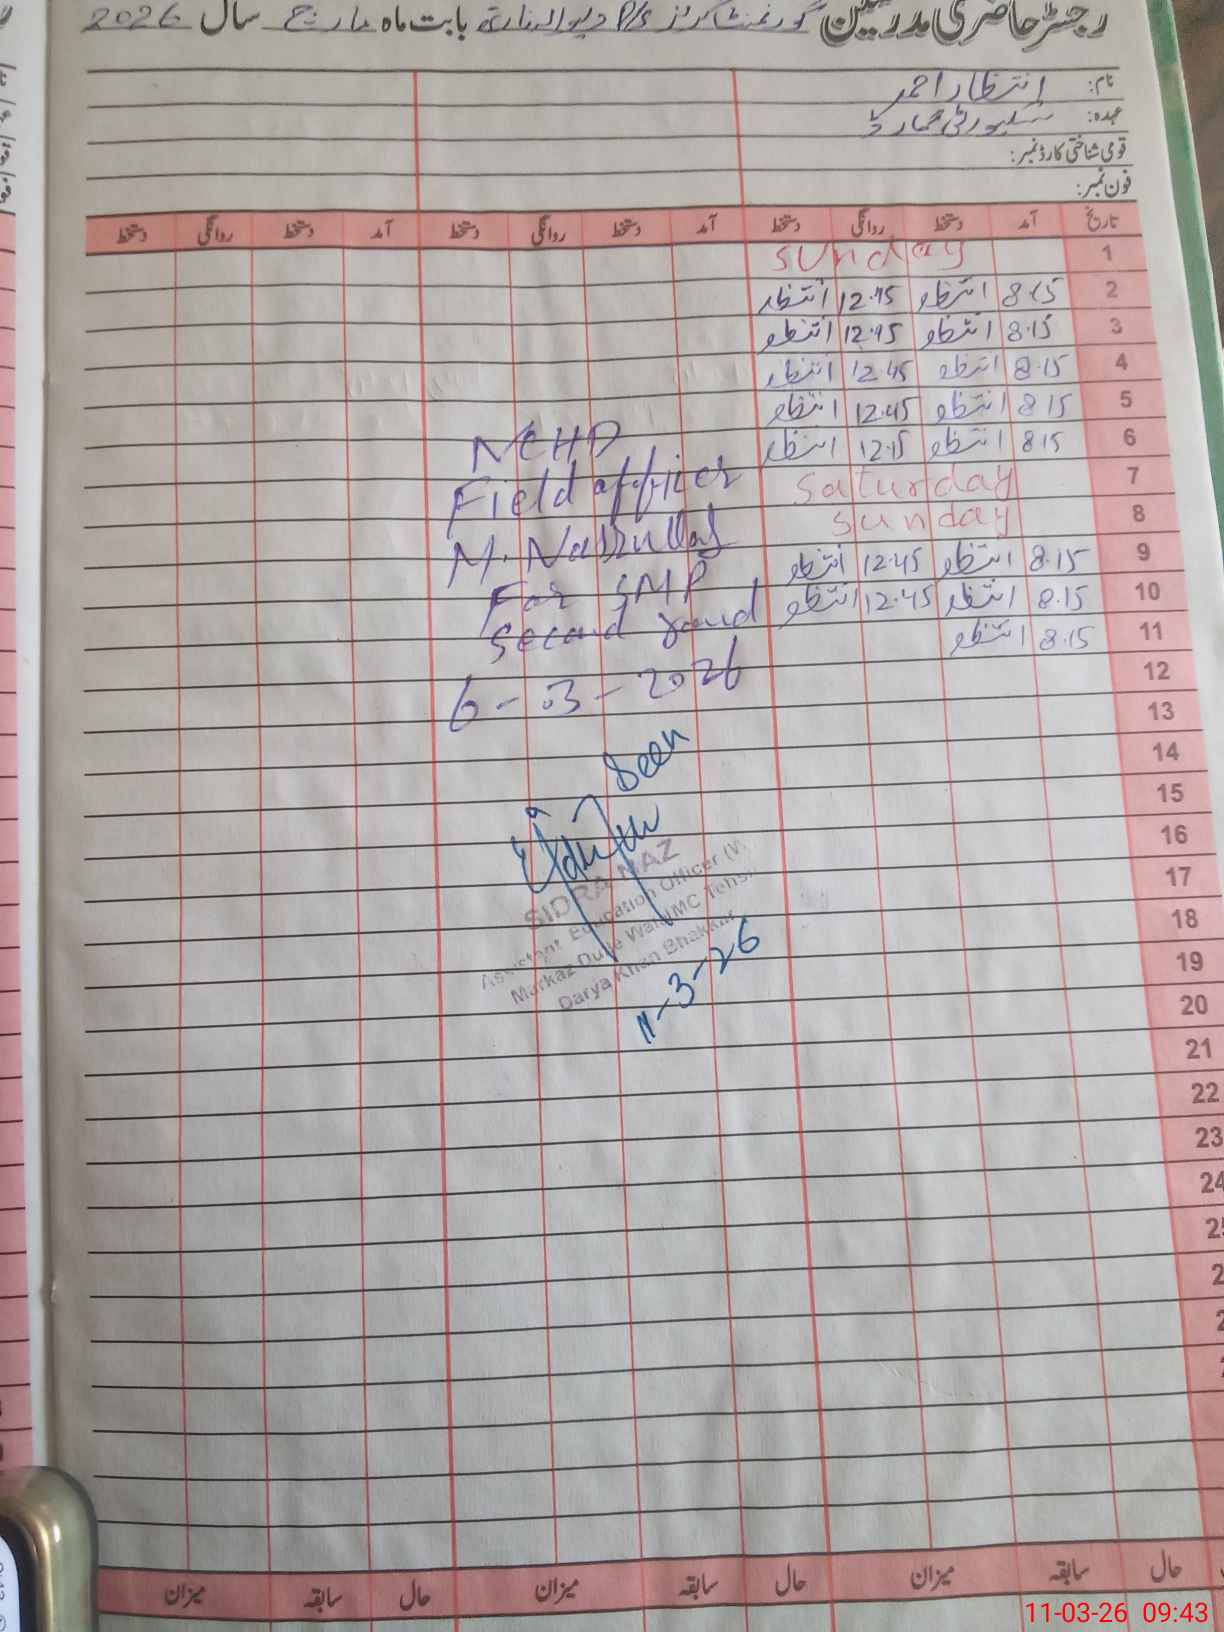 رجسٹر حاضری مدرسین گورنمنٹ گرلز P/S دیوالہ بابت ماہ مارچ سال 2026
نام: انتظار احمد
عہدہ: سکیورٹی گارڈ
قومی شناختی کارڈ نمبر:
فون نمبر:
تاریخ آمد دستخط روانگی دستخط آمد دستخط روانگی دستخط آمد دستخط روانگی دستخط
1 sunday
2 8.15 انتظار 12.45 انتظار
3 8.15 انتظار 12.45 انتظار
4 8.15 انتظار 12 45 انتظار
5 8 15 انتظار 12.45 انتظار
6 8 15 انتظار 12.15 انتظار
7 saturday
8 sunday
9 8.15 انتظار 12.45 انتظار
10 8.15 انتظار 12.45 انتظار
11 8.15 انتظار
12
13
14
15
16
17
18
19
20
21
22
23
24
NCHD
Field officer
M. Nasrullah
For SMP
Second round
6-03-2026
Seen
SIDRA NAZ
Assistant Education Officer (W
Markaz Dulle Wala MC Tehsi
Darya Khan Bhakkar
11-3-26
حال سابقہ میزان حال سابقہ میزان حال سابقہ میزان
11-03-26 09:43